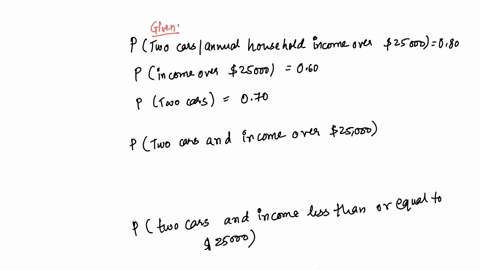 Given:
P (Two cars/annual household income over $25000)=0.80
P (income over $25000) = 0.60
P (Two cars) = 0.70
P (Two cars and income over $25,000)
P (two cars and income less than or equal to
$25000)